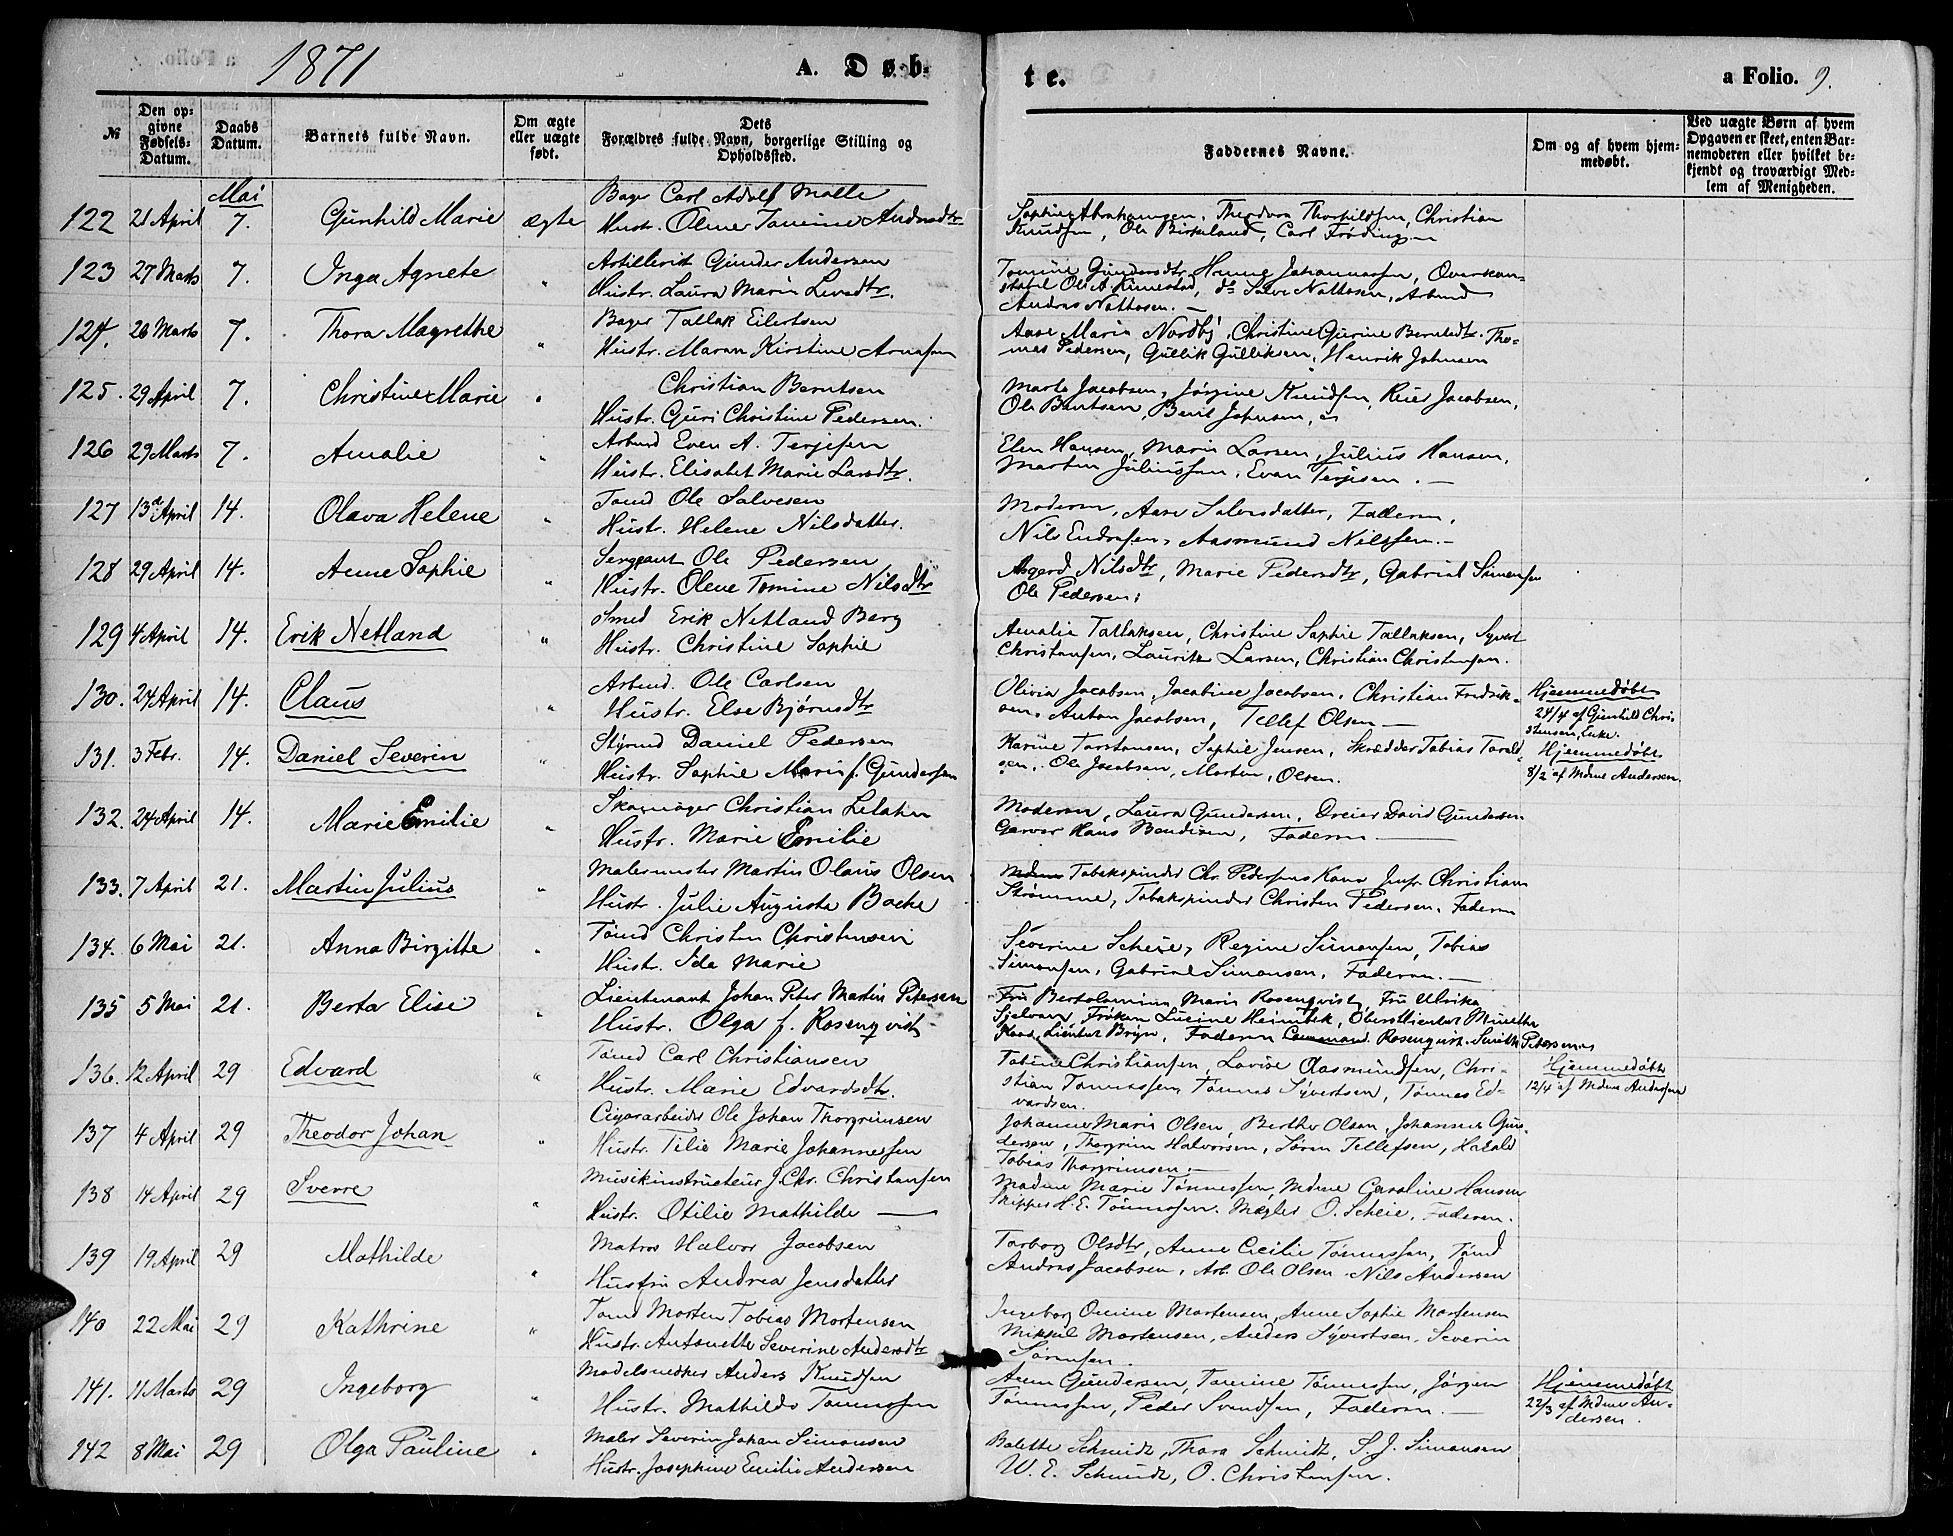 1871 A. Døb- te. a Folio. 9.
№ Den opgivne Fødsels-Datum. Daabs Datum. Barnets fulde Navn. Om ægte eller uægte født. Dets Forældres fulde Navn, borgerlige Stilling og Opholdssted. Faddernes Navne. Om og af hvem hjemmedøbt. Ved uægte Børn af hvem Opgaven er skeet, enten Barnemoderen eller hvilket bekjendt og troværdigt Medlem af Menigheden.
Mai
Bager Carl Adolf Malle
122 21 April 7. Gunhild Marie ægte Hustr. Olene Tomine Andersdtr
Sophie Abrahamsen, Theodora Thorkildsen, Christian
Knudsen, Ole Birkeland, Carl Frøding
123 27 Marts 7. Inga Agnete " Artillerist Gunder Andersen
Hustr. Laura Marie
Tomine Gundersdtr, Johannessen, Overkon-
stabel Ole A. ds Salve Nattosen, Arbmd
Andreas Nattosen. —
124. 28 Marts 7. Thora Magrethe " Bager Tallak Eilertsen
Hustr. Maren Kirstine Arnesen
Aase Marie Nordby, Christine Gurine Berntsdtr. Tho-
mas Pedersen, Gullik Gulliksen, Henrik Johnsen
125. 29 April 7. Christine Marie " Christian Berntsen
Hustr. Guri Christine Pedersen.
Marte Jacobsen, Jørgine Knudsen, Reier Jacobsen,
Ole Berntsen, Berit Johnsen,
126 29 Marts 7. Amalie " Arbmd Even A. Terjesen
Hustr. Elisabet Marie Larsdtr.
Elen Hansen, Marie Larsen, Julius Hansen,
Marten Juliussen, Evan Terjesen. —
127 13de April 14. Olava Helene " Tømd Ole Salvesen
Hustr. Helene Nilsdatter.
Moderen, Aase Salvesdatter, Faderen,
Nils Endresen, Aasmund Nilssen. —
128 29 April 14. Anne Sophie " Sergeant Ole Pedersen
Hustr. Olene Tomine Nilsdtr
Asgerd Nilsdtr, Marie Pedersdtr, Gabriel Simonsen
Ole Pedersen;
129 4 April 14. Erik Netland " Smed Erik Netland Berg
Hustr. Christine Sophie
Amalie Tallaksen, Christine Sophie Tallaksen, Syvert
Christensen, Lauritz Larsen, Christian Christensen.
130. 24 April 14. Claus " Arbmd. Ole Carlsen
Hustr. Else Bjørnsdtr
Olivia Jacobsen, Jacobine Jacobsen, Christian Fredrik-
sen, Anton Jacobsen, Tellef Olsen —
Hjemmedøbt
24/4 af Gunhild Chri-
stensen, Enke.
131. 3 Febr. 14. Daniel Severin " Styrmd Daniel Pedersen
Hustr. Sophie Marie f. Gundersen
Karine Torstensen, Sophie Jensen, Skrædder Tobias Torald-
sen, Ole Jacobsen, Morten Olsen.
Hjemmedøbt
8/2 af Mdme Andersen.
132. 24 April 14. Marie Emilie " Skomager Christian
Hustr. Marie Emilie
Moderen, Laura Gundersen, Dreier David Gundersen
Garver Hans Bendixen, Faderen —
133. 7 April 21. Martin Julius " Malermester Martin Olaus Olsen
Hustr. Julie Augusta Boche
Mdme Tobakspinder Chr. Pedersens Kone Jmfr Christiane
Strømme, Tobakspinder Christen Pedersen. Faderen
134. 6 Mai 21. Anna Birgitte " Tømd Christen Christensen
Hustr. Ida Marie
Severine Scheie, Regine Simonsen, Tobias
Simonsen, Gabriel Simonsen, Faderen. —
135 5 Mai 21. Berta Elise " Lieutenant Johan Peter Martin Petersen
Hustr. Olga f. Rosenqvist
Fru Bertolamine Marie Rosenqvist, Fru Ulrika
Frøken Lucine Heimbek, Oberstlieutnt Munthe
Kaas, Lieutnt Bryn, Faderen Rosenqvist. Smith Petersens
136. 12 April 29 Edvard " Tømd Carl Christiansen
Hustr. Marie Edvardsdtr.
Tobine Christiansen, Lovise Aasmundsen, Chri-
stian Tønnessen, Tønnes Syvertsen, Tønnes Ed-
vardsen.
Hjemmedøbt
12/4 af Mdme Andersen
137 4 April 29 Theodor Johan " Cigararbeider Ole Johan Thorgrimsen
Hustr. Tilie Marie Johannessen
Johanne Marie Olsen, Berthe Olsen, Johannes Gun-
dersen, Thorgrim Halvorsen, Søren Tellefsen, Harald
Tobias Thorgrimsen. —
138 14 April 29 Sverre " Musikinstructeur J. Chr. Christensen
Hustr. Otilie Mathilde —
Madme Marie Tønnessen, Mdme Caroline Hansen
Skipper H. E. Tønnesen. Mægler O. Scheie, Faderen.
139 19 April 29 Mathilde " Matros Halvor Jacobsen
Hustru Andrea Jensdatter
Torborg Olsdtr, Anne Cecilie Tønnessen, Tømd
Andreas Jacobsen, Arb. Ole Olsen. Nils Andersen
140 22 Mai 29 Kathrine " Tømd Morten Tobias Mortensen
Hustr. Antonette Severine Andersdtr
Ingeborg Mortensen, Anne Sophie Mortensen
Mikkel Mortensen, Anders Syvertsen, Severin
Sørensen.
141. 11 Marts 29 Ingeborg " Modelsnedker Anders Knudsen
Hustr. Mathilde Tønnessen
Anne Gundersen, Tomine Tønnessen, Jørgen
Tønnessen, Peder Svendsen, Faderen. —
Hjemmedøbt
22/3 af Mdme An-
dersen.
142 8 Mai 29 Olga Pauline " Maler Severin Johan Simonsen
Hustr. Josephine Emilie Andersen
Bolette Schmidt, Thora Schmidt, S. J. Simonsen
W. E. Schmidt, O. Christensen.